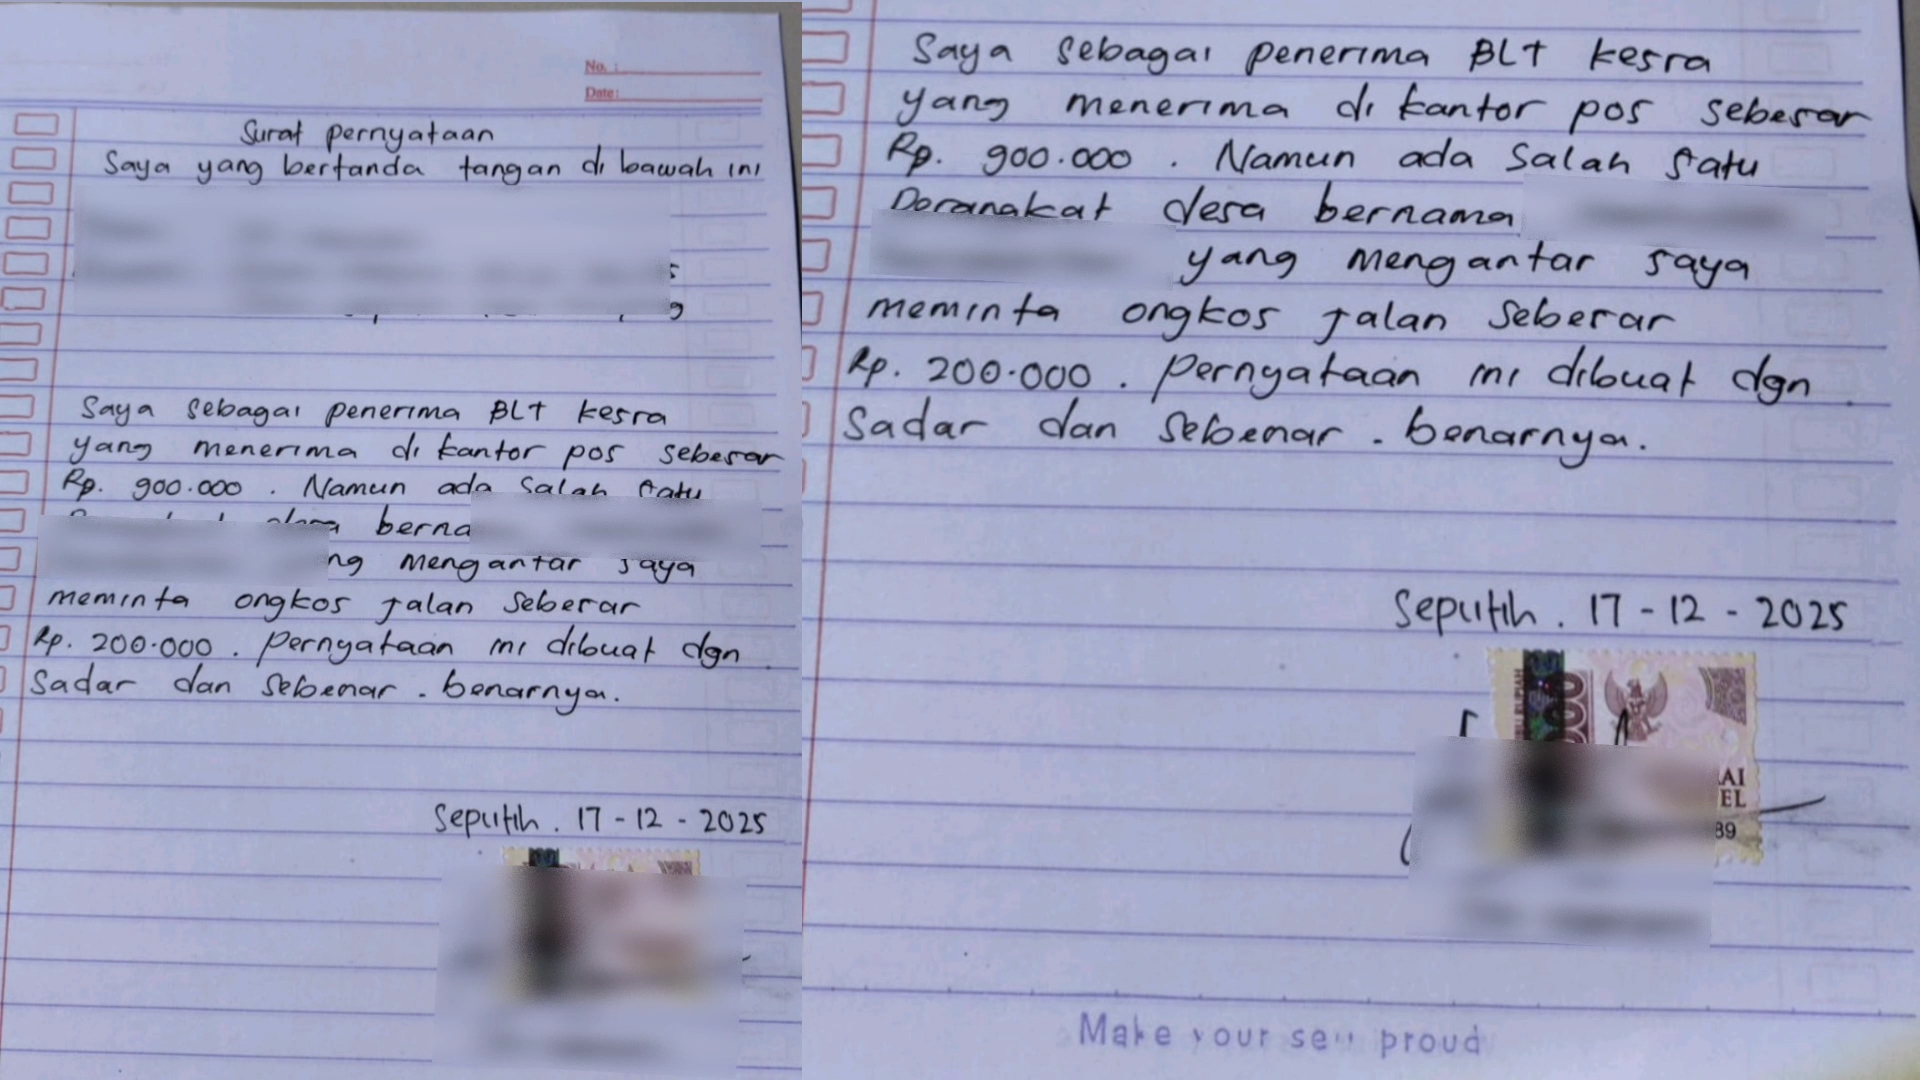 No. :
Date:
Surat pernyataan
Saya yang bertanda tangan di bawah ini
Saya sebagai penerima BLT kesra
yang menerima di kantor pos sebesar
Rp. 900.000 . Namun ada Salah Satu
desa berna
ng mengantar saya
meminta ongkos jalan Sebesar
Rp. 200.000 . pernyataan ini dibuat dgn
Sadar dan Sebenar - benarnya.
Seputih . 17 - 12 - 2025
Saya sebagai penerima BLT kesra
yang menerima di kantor pos sebesar
Rp. 900.000 . Namun ada Salah Satu
Perangkat desa bernama
yang mengantar saya
meminta ongkos jalan Sebesar
Rp. 200.000 . pernyataan ini dibuat dgn
Sadar dan Sebenar - benarnya.
Seputih . 17 - 12 - 2025
AI
EL
89
Make your self proud